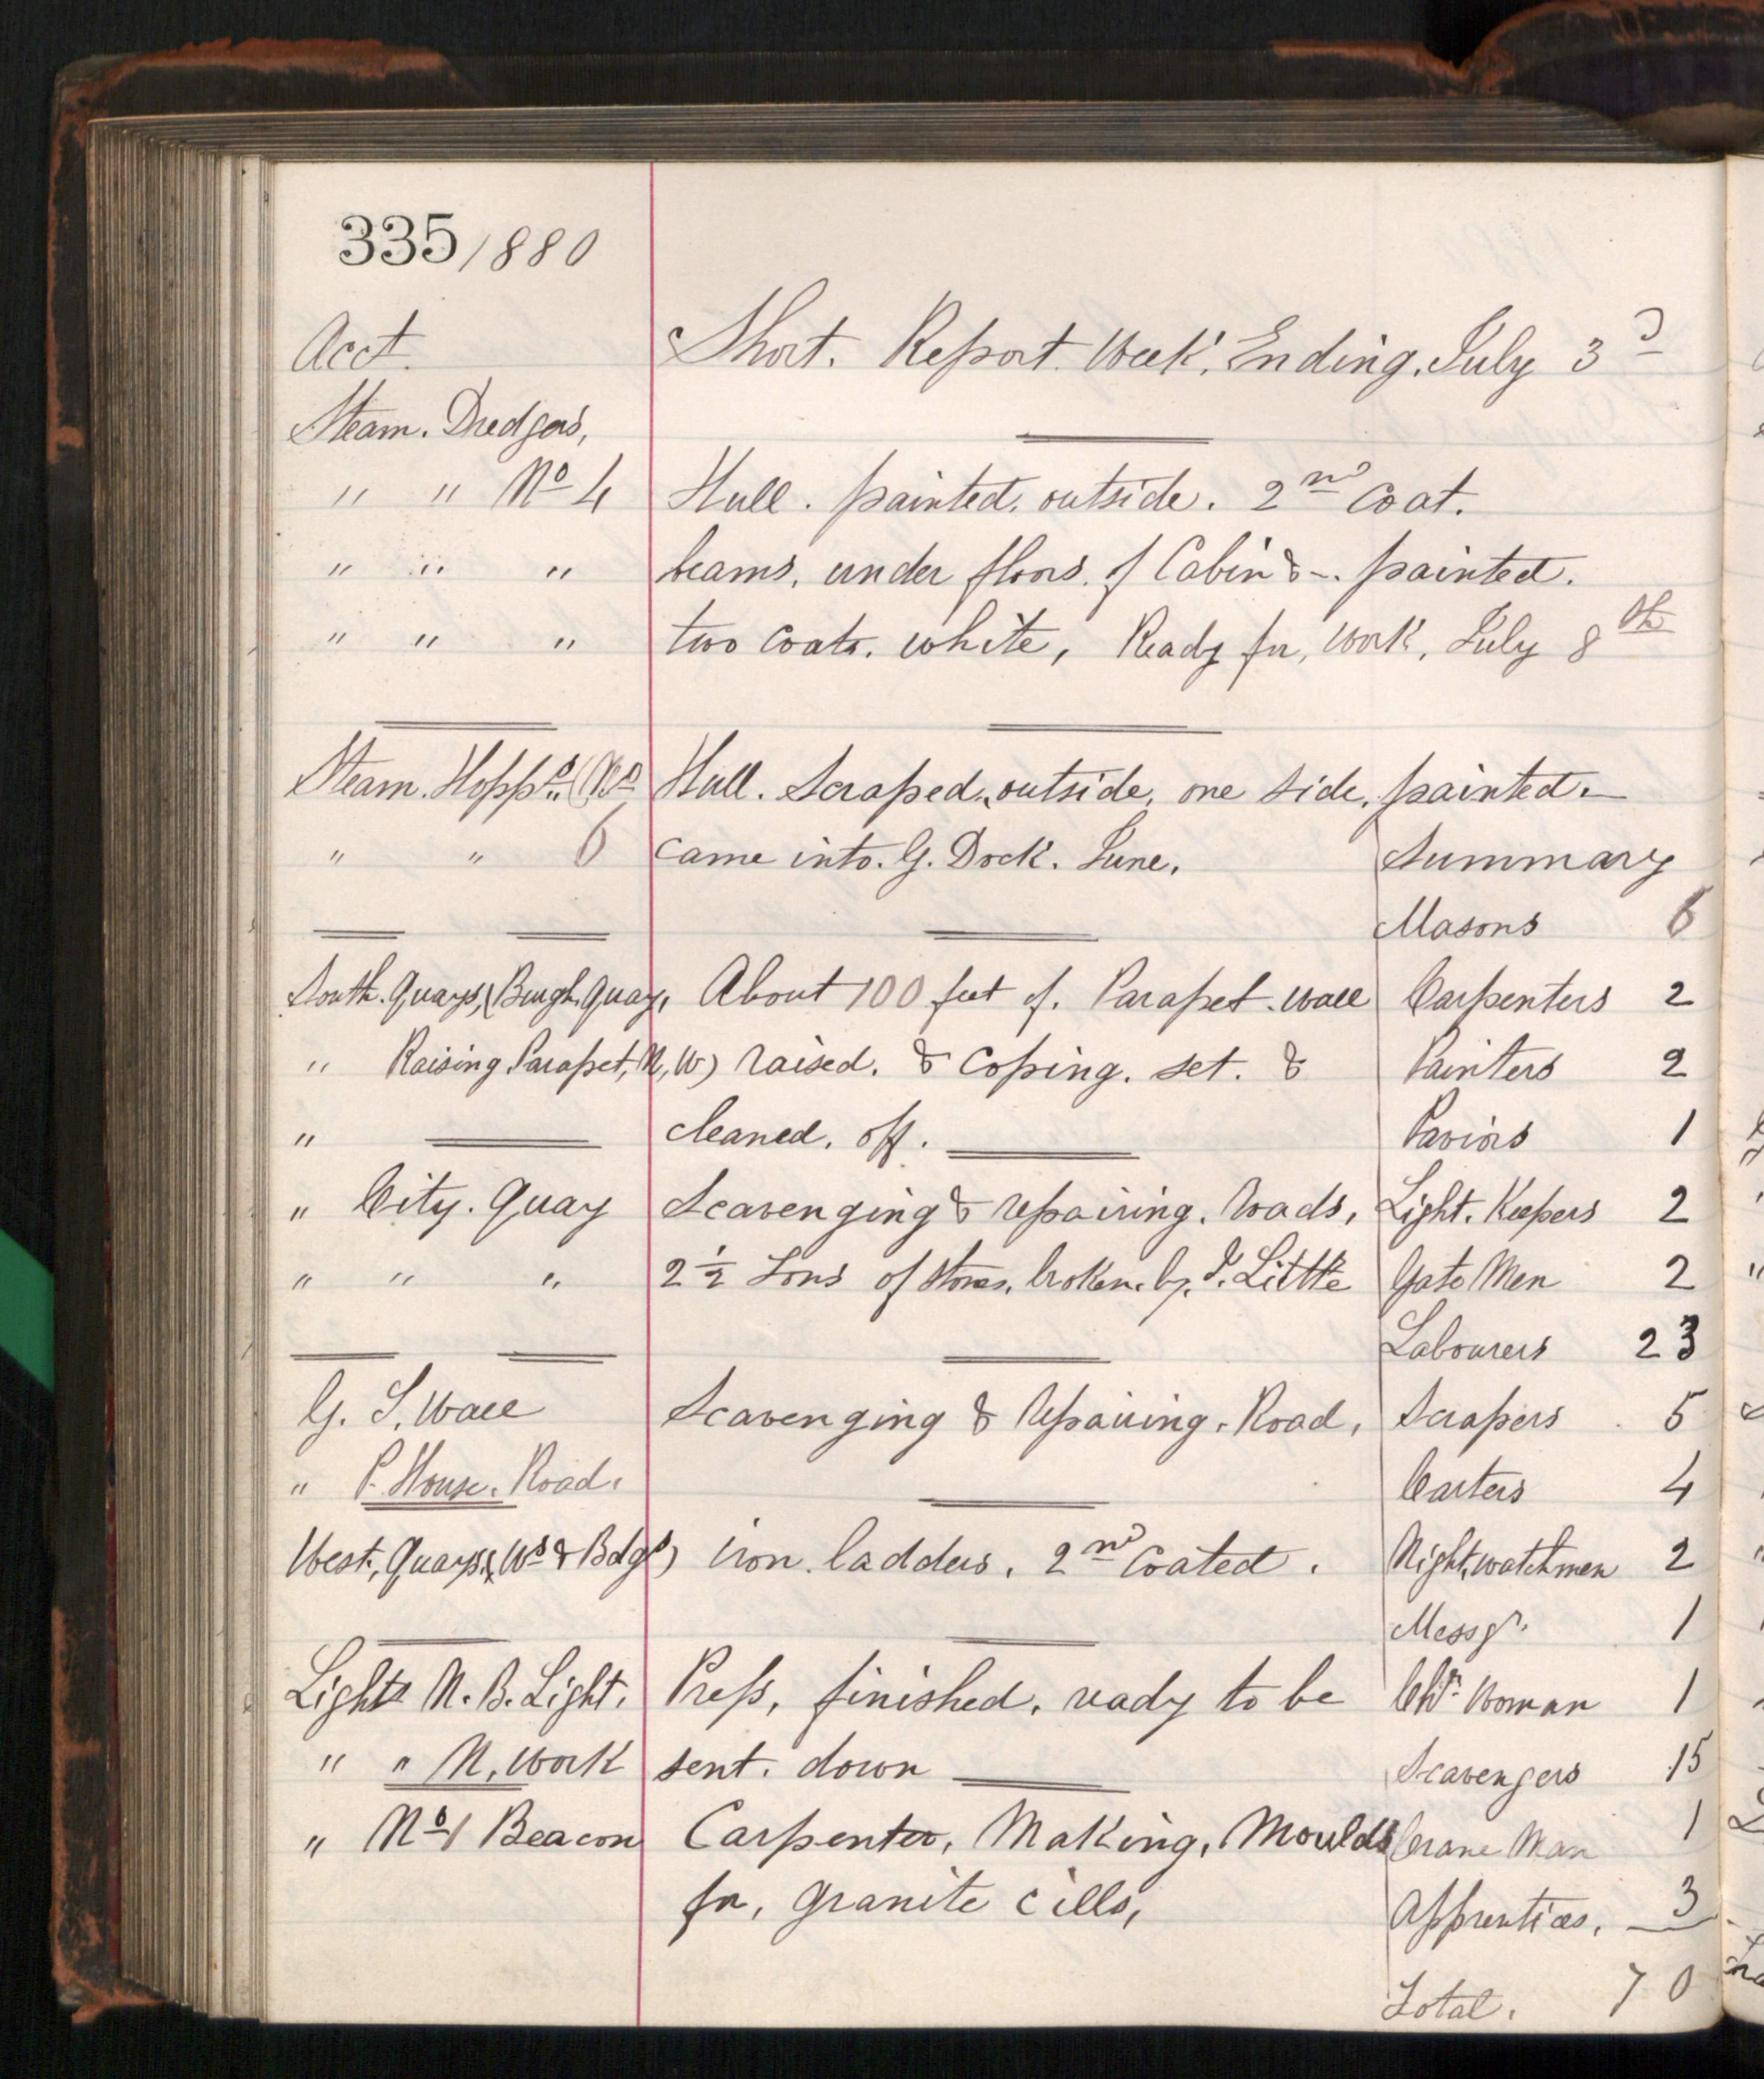 335/1880
Acct. Short. Report. Week. Ending. July 3d
Steam. Dredgers,
" " No 4 Hull. painted. outside. 2nd Coat.
" " " beams, under floors. of Cabin &-. painted.
" " " two coats. white, Ready for, work, July 8th
Steam. Hopprs. (No Hull. Scraped. outside, one side, painted.
" " 6 came into. G. Dock. June. Summary
Masons 6
South. Quays, (Burgh. Quay, About 100 feet of. Parapet. wall Carpenters 2
" Raising. Parapet, N, W) raised. & Coping. set. & Painters 2
" cleaned. off. Paviors 1
" City. Quay Scavenging & repairing. roads, Light. Keepers 2
" " " 2½ Tons of stones. broken. by. J. Little Gate Men 2
Labourers 23
G. S. Wall Scavenging & Repairing. Road, Scrapers 5
" P. House. Road. Carters 4
West, Quays, (Ws & Bdgs) iron. ladders. 2nd Coated. Night, watchmen 2
Messgr. 1
Lights N. B. Light. Press, finished. ready to be Chr. Woman 1
" " N, Work sent. down Scavengers 15
" No 1 Beacon Carpenter, Making, Moulds Crane Man 1
for, granite cills, Apprentices, 3
Total. 70